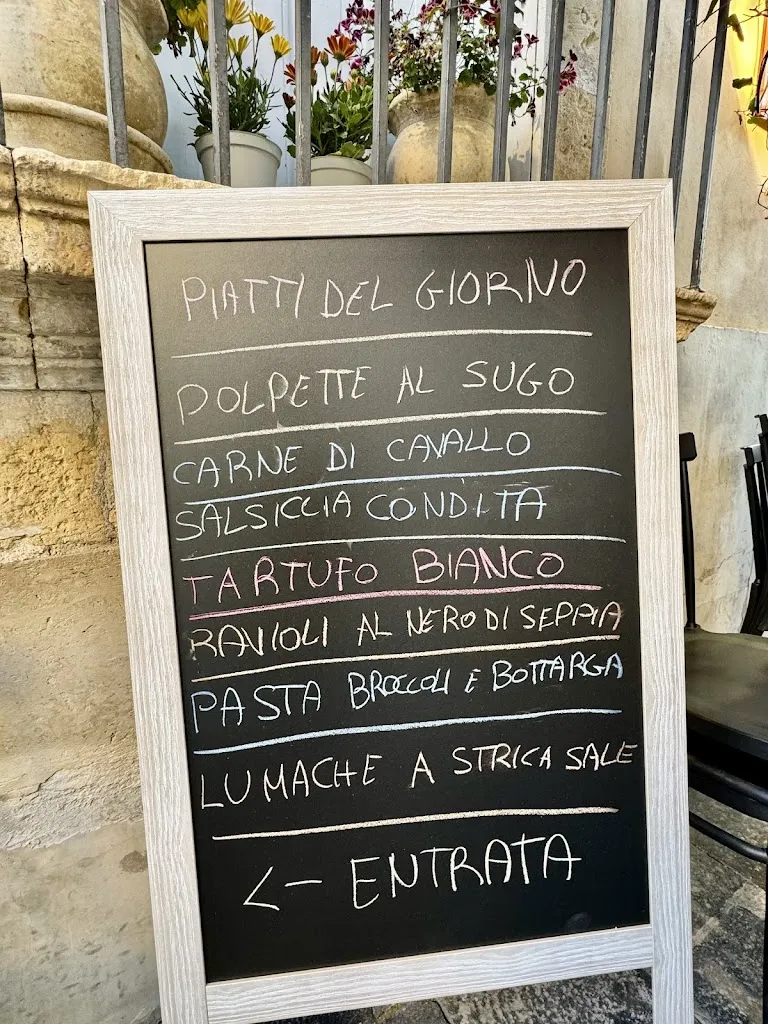 PIATTI DEL GIORNO
POLPETTE AL SUGO
CARNE DI CAVALLO
SALSICCIA CONDITA
TARTUFO BIANCO
RAVIOLI AL NERO DI SEPPIA
PASTA BROCCOLI E BOTTARGA
LUMACHE A STRICA SALE
<- ENTRATA